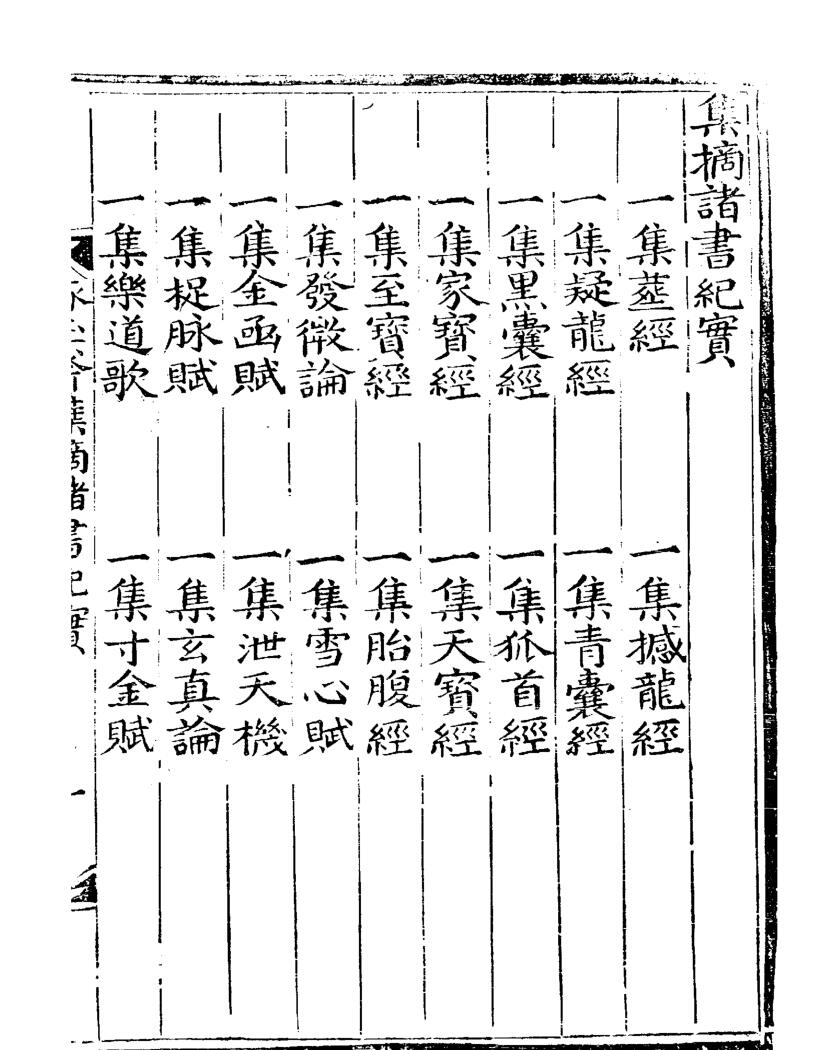 集摘諸書紀實
一集葬經　一集撼龍經
一集疑龍經　一集青囊經
一集黑囊經　一集狐首經
一集家寳經　一集天寳經
一集至寳經　一集胎腹經
一集發微論　一集雪心賦
一集金函賦　一集泄天機
一集捉脉賦　一集玄真論
一集樂道歌　一集寸金賦
集摘諸書紀實
一